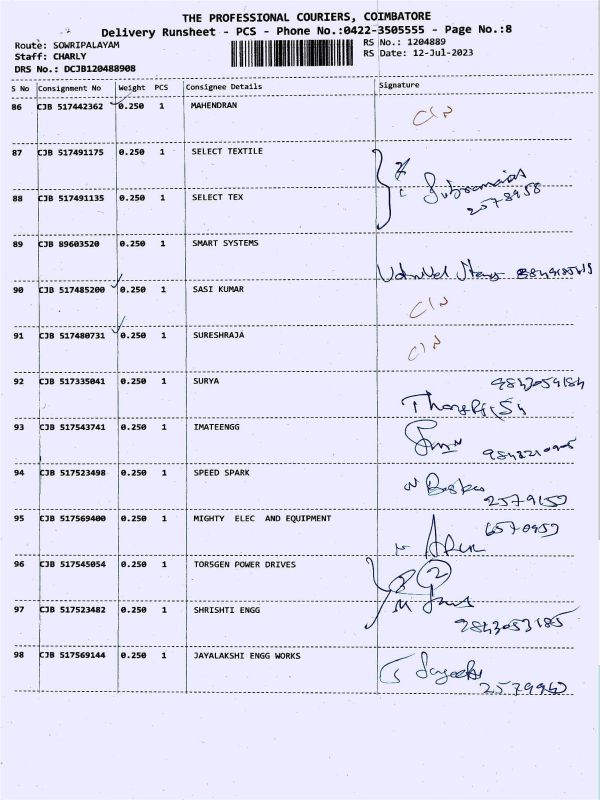 THE PROFESSIONAL COURIERS, COIMBATORE
Delivery Runsheet - PCS - Phone No.:0422-3505555 - Page No.:8
Route: SOWRIPALAYAM RS No.: 1204889
Staff: CHARLY RS Date: 12-Jul-2023
DRS No.: DCJB120488908
S No Consignment No Weight PCS Consignee Details Signature
86 CJB 517442362 0.250 1 MAHENDRAN
C/N
87 CJB 517491175 0.250 1 SELECT TEXTILE
88 CJB 517491135 0.250 1 SELECT TEX
2578958
89 CJB 89603520 0.250 1 SMART SYSTEMS
90 CJB 517485200 0.250 1 SASI KUMAR
C/N
91 CJB 517480731 0.250 1 SURESHRAJA
C/N
92 CJB 517335041 0.250 1 SURYA
9843054184
93 CJB 517543741 0.250 1 IMATEENGG
94 CJB 517523498 0.250 1 SPEED SPARK
95 CJB 517569400 0.250 1 MIGHTY ELEC AND EQUIPMENT
6570953
96 CJB 517545054 0.250 1 TORSGEN POWER DRIVES
2
97 CJB 517523482 0.250 1 SHRISHTI ENGG
9843053185
98 CJB 517569144 0.250 1 JAYALAKSHI ENGG WORKS